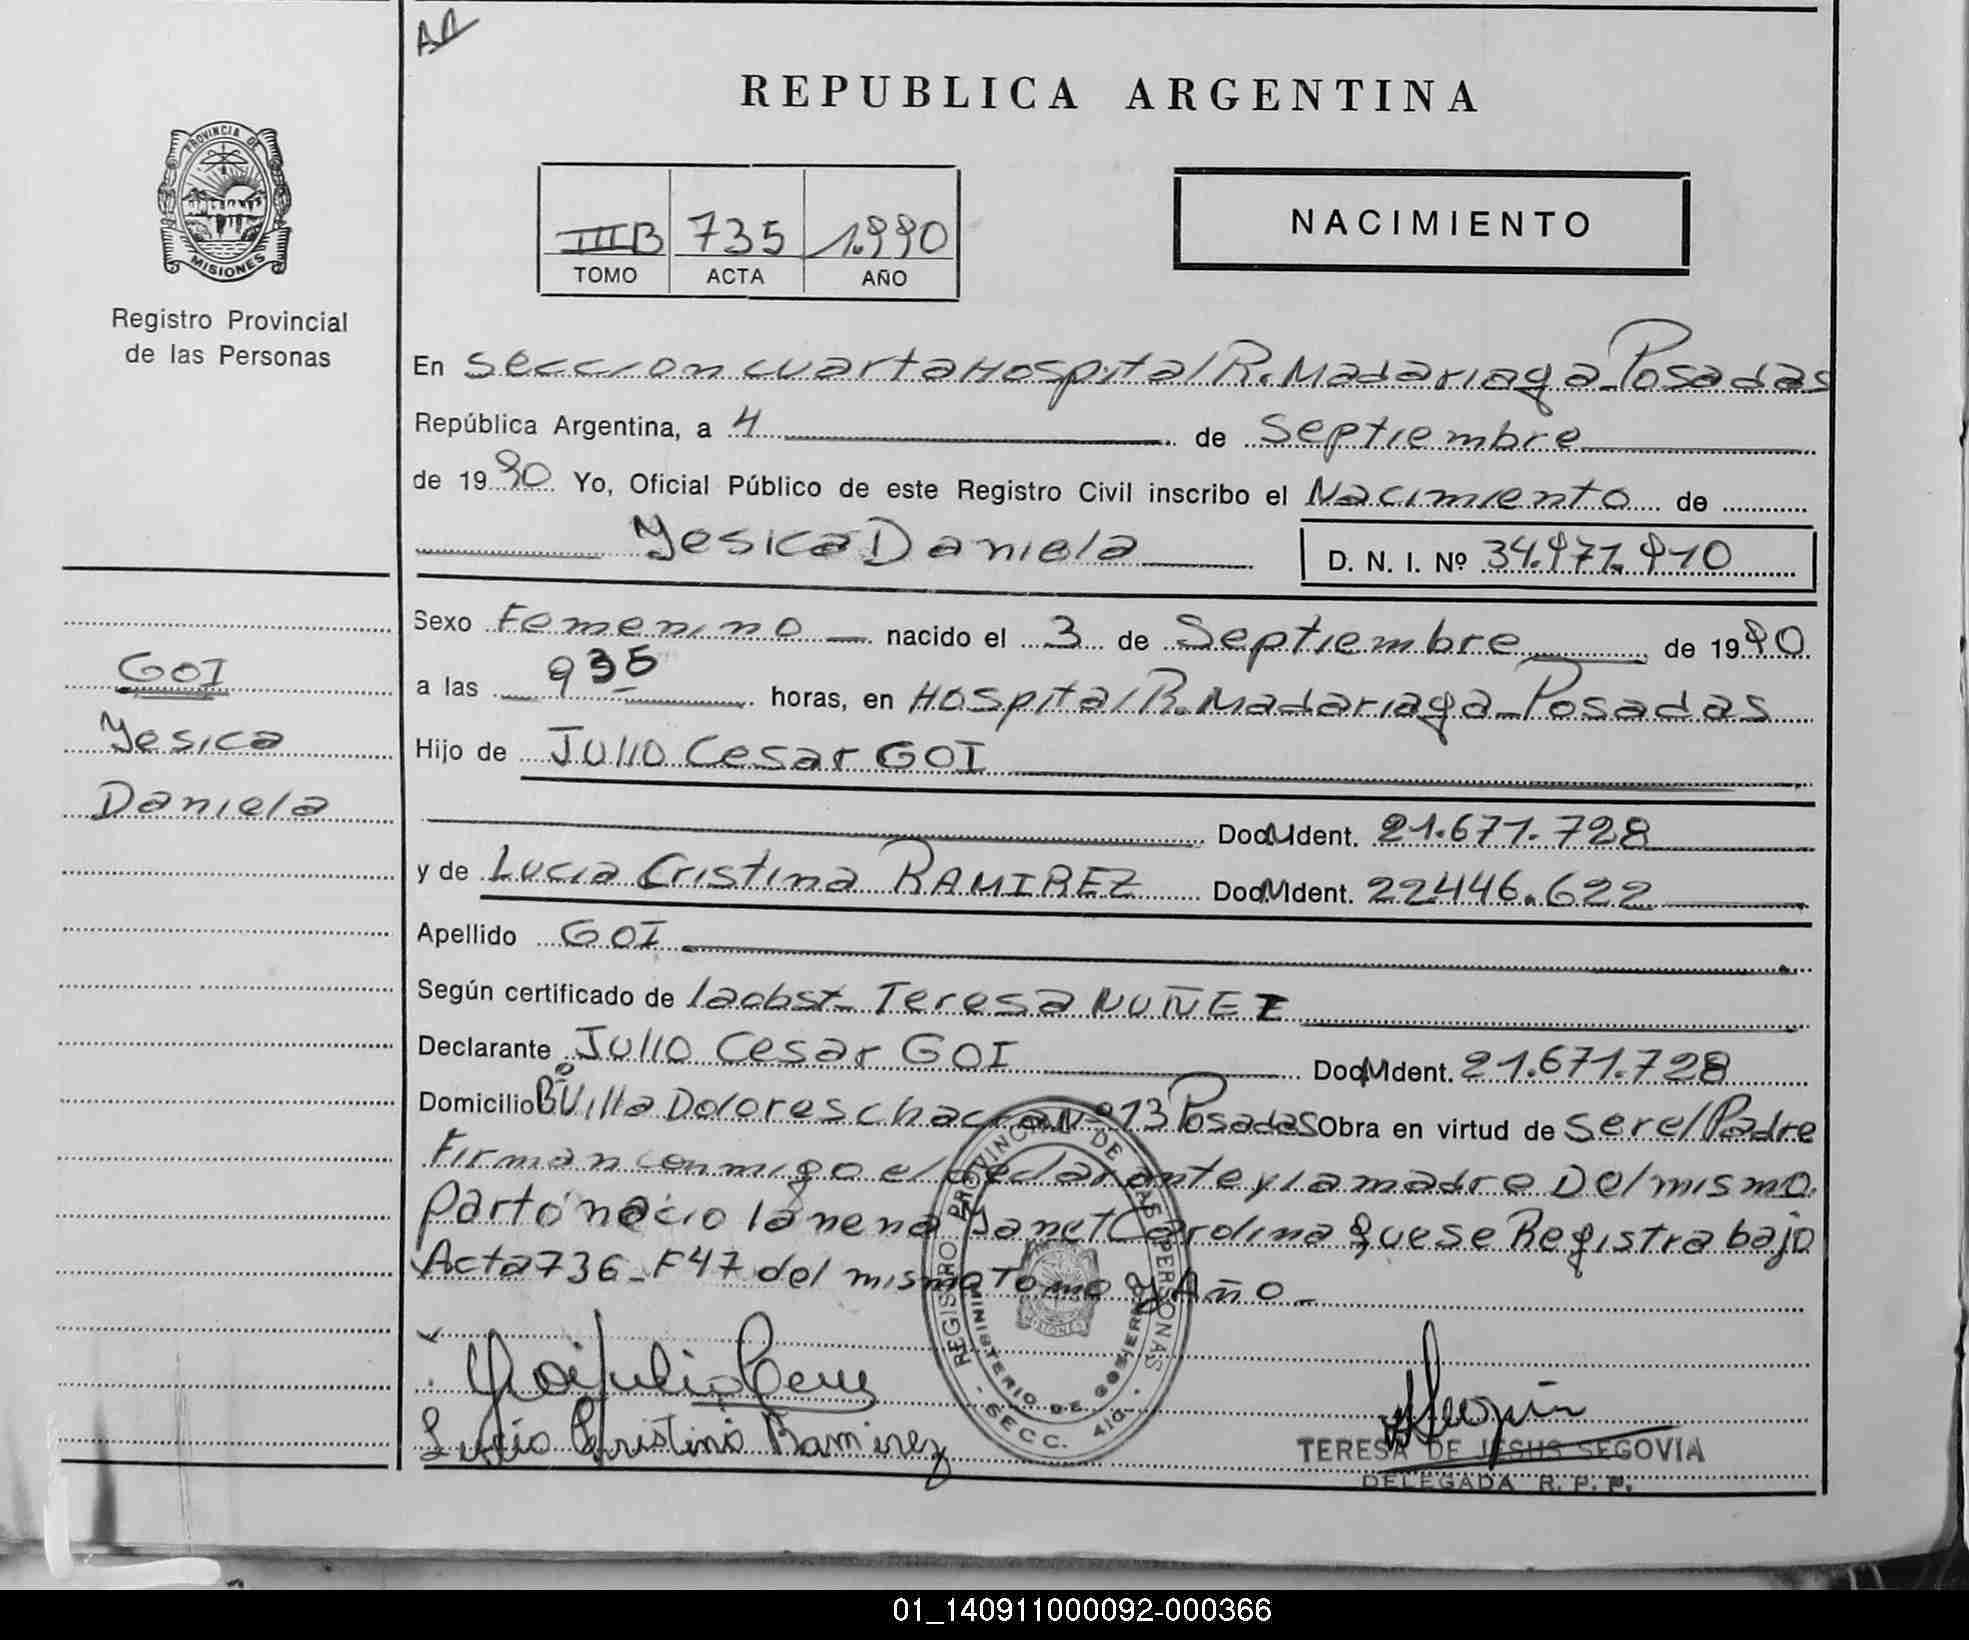 AR
REPUBLICA ARGENTINA
PROVINCIA DE
MISIONES
Registro Provincial
de las Personas
IIIB 735 1.990
TOMO ACTA AÑO
NACIMIENTO
En Seccion cuarta Hospital R. Madariaga_Posadas
República Argentina, a 4 de Septiembre
de 1990 Yo, Oficial Público de este Registro Civil inscribo el Nacimiento de
Yesica Daniela D. N. I. Nº 34.971.910
Sexo Femenino nacido el 3 de Septiembre de 1990
a las 9 35 horas, en Hospital R. Madariaga_Posadas
Hijo de Julio Cesar GOI
Doc. Ident. 21.671.728
y de Lucia Cristina RAMIREZ Doc. Ident. 22446.622
Apellido GOI
Según certificado de la obst_ Teresa NUÑEZ
Declarante Julio Cesar GOI Doc. Ident. 21.671.728
Domicilio Bº Villa Dolores chacra Nº 13 Posadas Obra en virtud de ser el Padre
Firman conmigo el declarante y la madre Del mismo
parto nacio la nena Yanet Carolina que se Registra bajo
Acta 736_F47 del mismo Tomo y Año_
GOI
Yesica
Daniela
Goi Julio Cesar
Lucia Cristina Ramirez
REGISTRO PROVINCIAL DE LAS PERSONAS
MINISTERIO DE GOBIERNO
- SECC. 4ta. -
MISIONES
TERESA DE JESUS SEGOVIA
DELEGADA R. P. P.
01_140911000092-000366